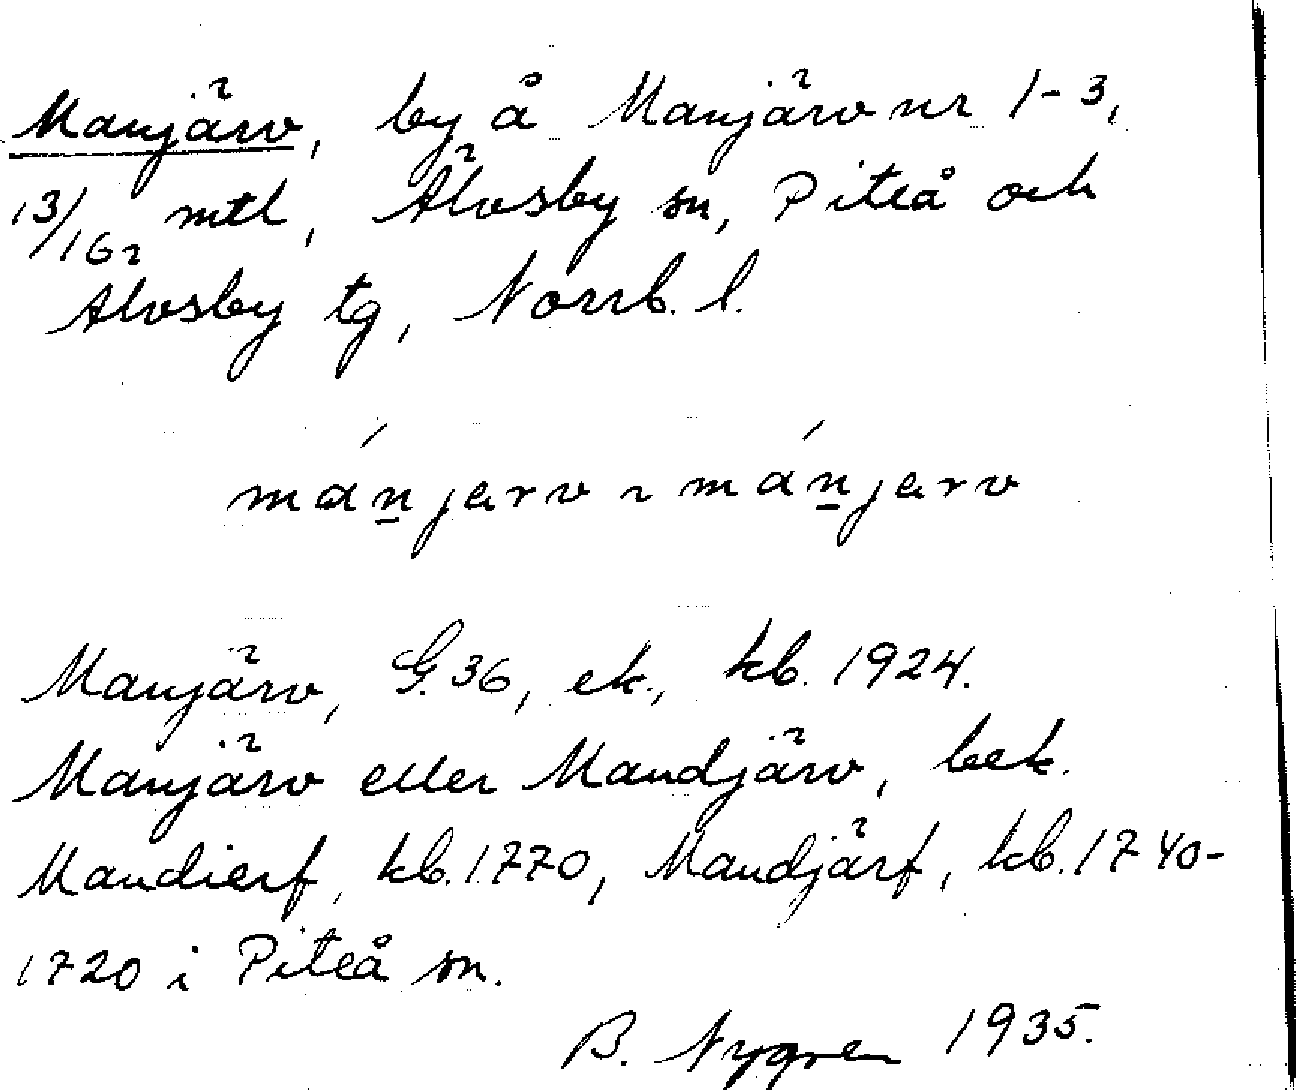 Manjärv, by å Manjärv nr 1-3,
13/162 mtl, Älvsby sn, Piteå och
Älvsby tg, Norrb. l.
mánjarv ~ mánjarv
Manjärv, G.36, ek., kb. 1924.
Manjärv eller Mandjärv, bek.
Mandierf, kb. 1770, Mandjärf, kb. 1740-
1720 i Piteå sn.
B. Nygren 1935.